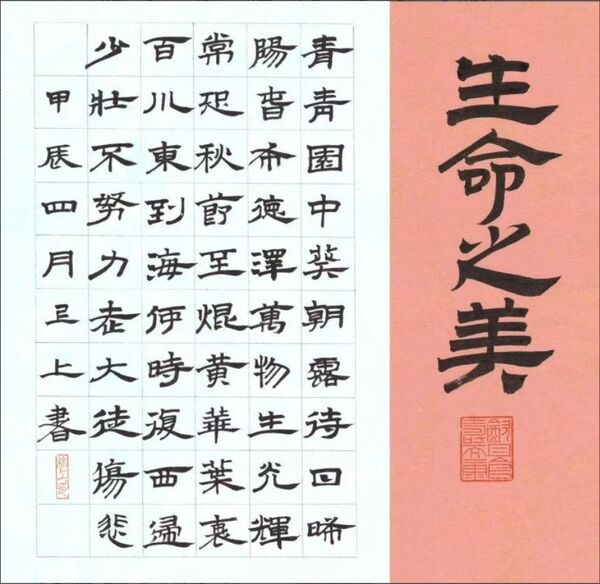 生命之美
青青園中葵朝露待日晞
陽春布德澤萬物生光輝
常恐秋節至焜黃華葉衰
百川東到海何時復西歸
少壯不努力老大徒傷悲
甲辰四月上書